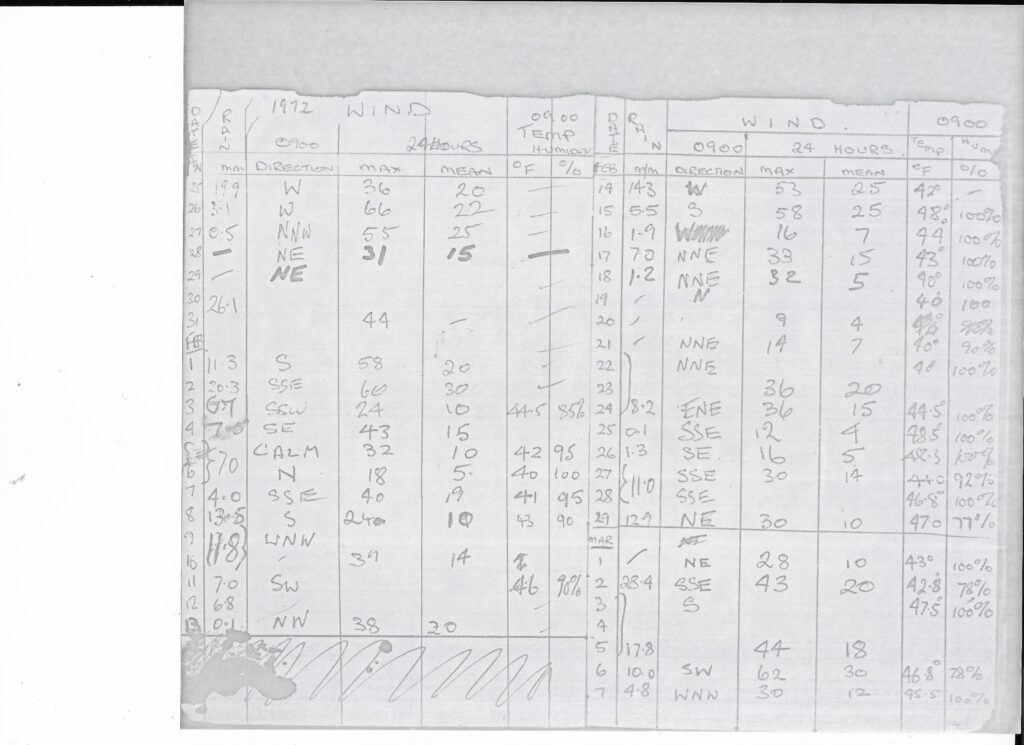 1972 WIND 0900 TEMP HUMIDITY
DATE RAIN 0900 24 HOURS
mm DIRECTION MAX MEAN °F %
25 19.9 W 36 20 —
26 3.1 W 66 22 —
27 0.5 NNW 55 25 —
28 — NE 31 15 —
29 — NE
30 26.1
31 44 —
FEB
1 11.3 S 58 20
2 20.3 SSE 60 30
3 SSW 24 10 44.5 85%
4 7.0 SE 43 15
5 } 70 CALM 32 10 42 95
6 N 18 5 40 100
7 4.0 SSE 40 19 41 95
8 13.5 S 24 10 43 90
9 } 11.8 WNW
10 - 39 14
11 7.0 SW 46 90%
12 6.8
13 0.1 NW 38 20
DATE RAIN WIND. 0900
0900 24 HOURS TEMP HUM
FEB m/m DIRECTION MAX MEAN °F %
14 14.3 W 53 25 42° —
15 5.5 S 58 25 48° 100%
16 1.9 16 7 44 100%
17 7.0 NNE 33 15 43° 100%
18 1.2 NNE 32 5 40° 100%
19 - N 40° 100
20 - 9 4
21 - NNE 14 7 40° 90%
22 NNE 48 100%
23 36 20
24 8.2 ENE 36 15 44.5° 100%
25 0.1 SSE 12 4 48.5° 100%
26 1.3 SE 16 5 48.3 100%
27 } 11.0 SSE 30 14 44.0 92%
28 SSE 46.8° 100%
29 12.9 NE 30 10 47.0 77%
MAR
1 - NE 28 10 43° 100%
2 28.4 SSE 43 20 42.8° 78%
3 S 47.5° 100%
4
5 17.8 44 18
6 10.0 SW 62 30 46.8° 78%
7 4.8 WNW 30 12 45.5 100%